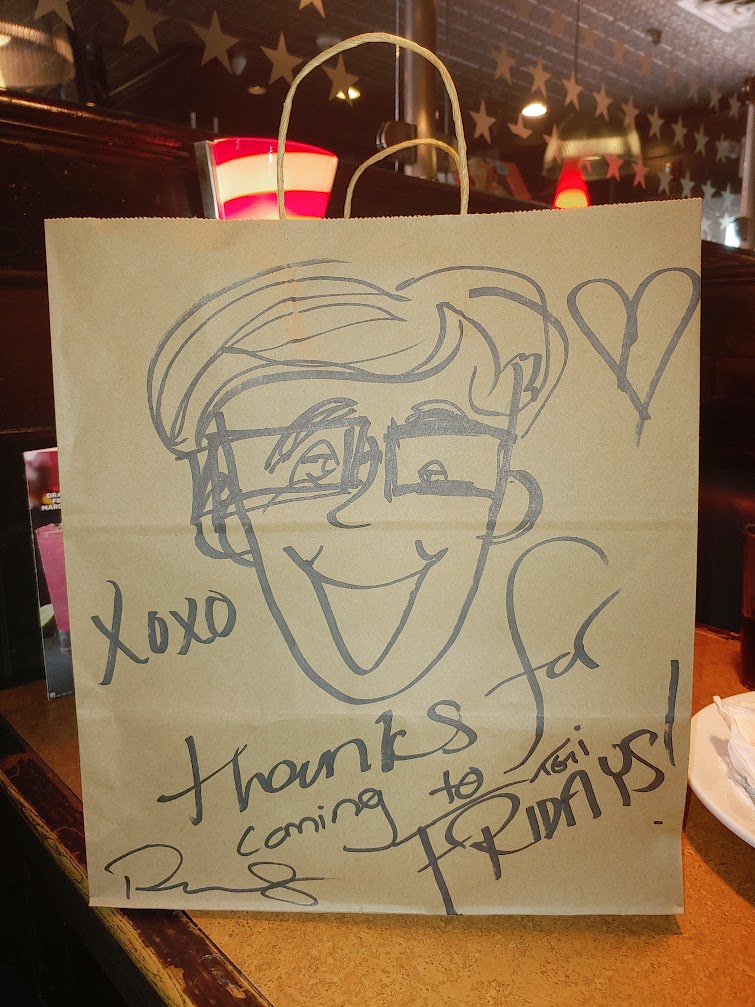 XOXO
thanks for
coming to TGI
FRIDAYS!